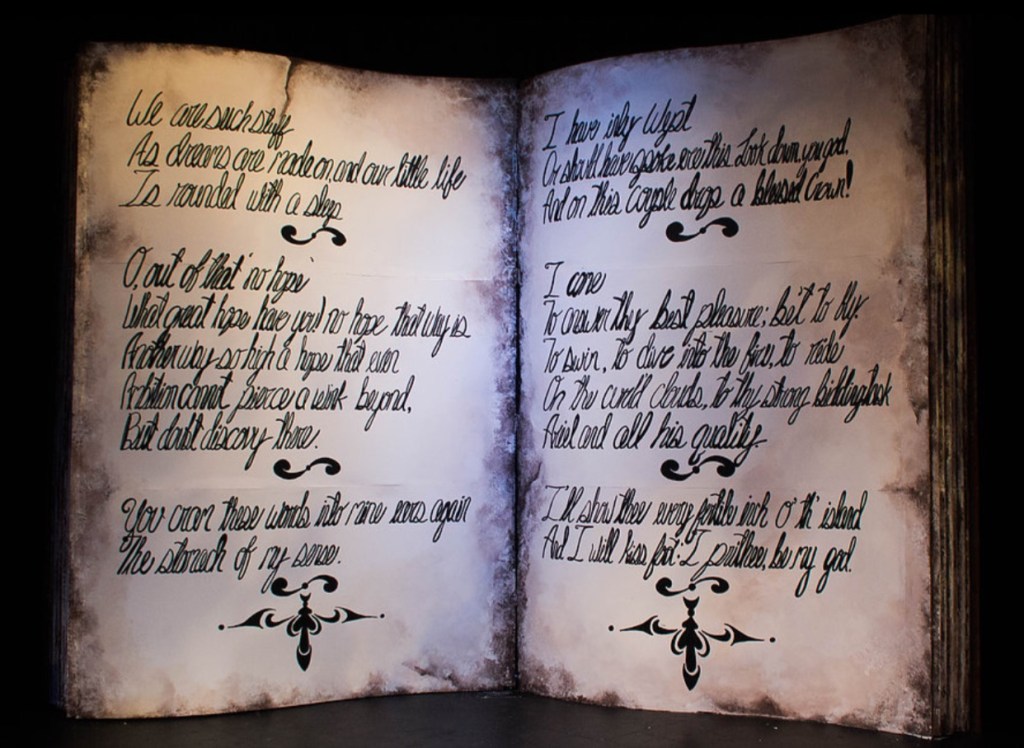 We are such stuff
As dreams are made on, and our little life
Is rounded with a sleep
O, out of that 'no hope'
What great hope have you! no hope that way is
Another way so high a hope that even
Ambition cannot pierce a wink beyond,
But doubt discovery there.
You cram these words into mine ears again
The stomach of my sense.
I have inly wept
Or should have spoke ere this. Look down, you god.
And on this couple drop a blessed crown!
I come
To answer thy best pleasure; be't to fly.
To swim, to dive into the fire, to ride
On the curl'd clouds, to thy strong bidding task
Ariel and all his quality.
I'll show thee every fertile inch o' th' island
And I will kiss foot: I prithee, be my god.